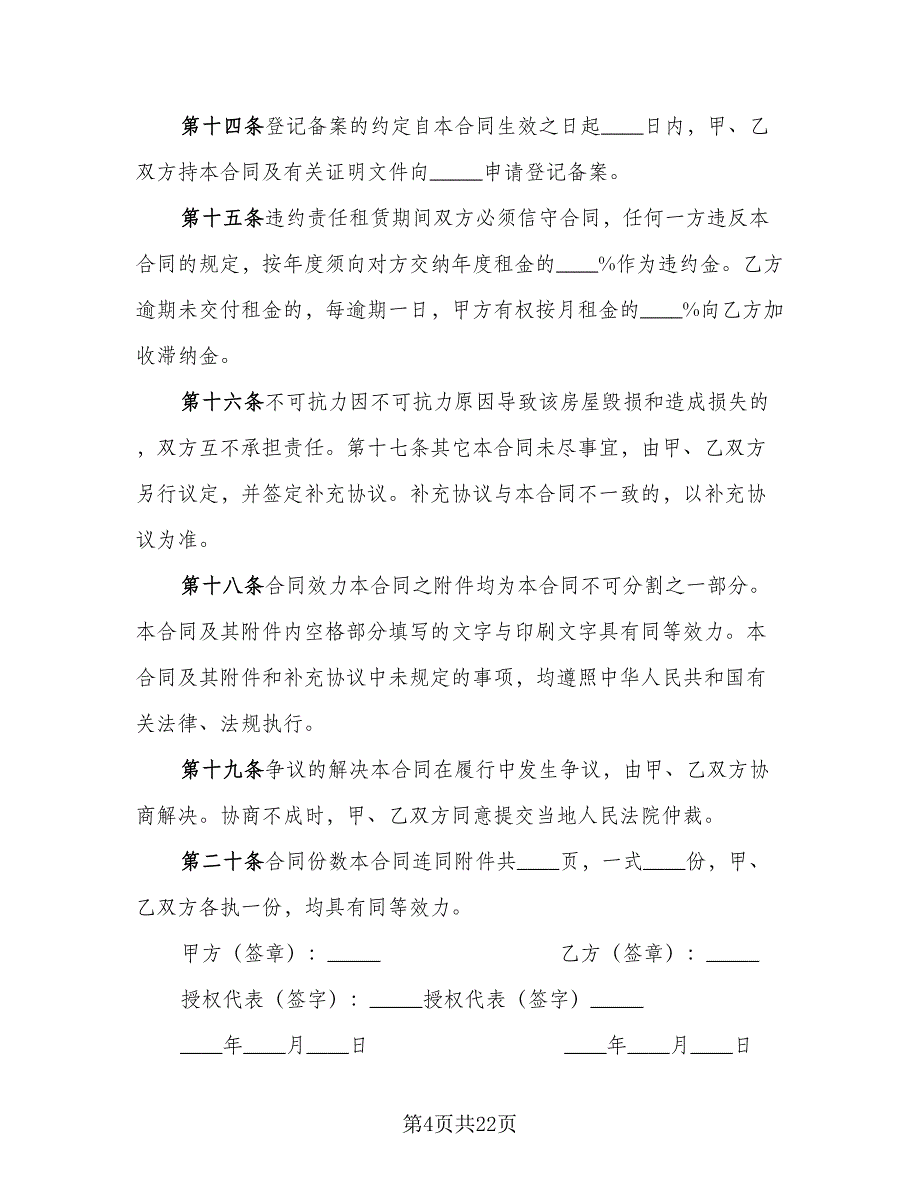 第十四条登记备案的约定自本合同生效之日起____日内，甲、乙
双方持本合同及有关证明文件向_____申请登记备案。
第十五条违约责任租赁期间双方必须信守合同，任何一方违反本
合同的规定，按年度须向对方交纳年度租金的____%作为违约金。乙方
逾期未交付租金的，每逾期一日，甲方有权按月租金的____%向乙方加
收滞纳金。
第十六条不可抗力因不可抗力原因导致该房屋毁损和造成损失的
，双方互不承担责任。第十七条其它本合同未尽事宜，由甲、乙双方
另行议定，并签定补充协议。补充协议与本合同不一致的，以补充协
议为准。
第十八条合同效力本合同之附件均为本合同不可分割之一部分。
本合同及其附件内空格部分填写的文字与印刷文字具有同等效力。本
合同及其附件和补充协议中未规定的事项，均遵照中华人民共和国有
关法律、法规执行。
第十九条争议的解决本合同在履行中发生争议，由甲、乙双方协
商解决。协商不成时，甲、乙双方同意提交当地人民法院仲裁。
第二十条合同份数本合同连同附件共____页，一式____份，甲、
乙双方各执一份，均具有同等效力。
甲方（签章）：_____ 乙方（签章）：_____
授权代表（签字）：_____授权代表（签字）_____
____年____月____日 ____年____月____日
第4页共22页